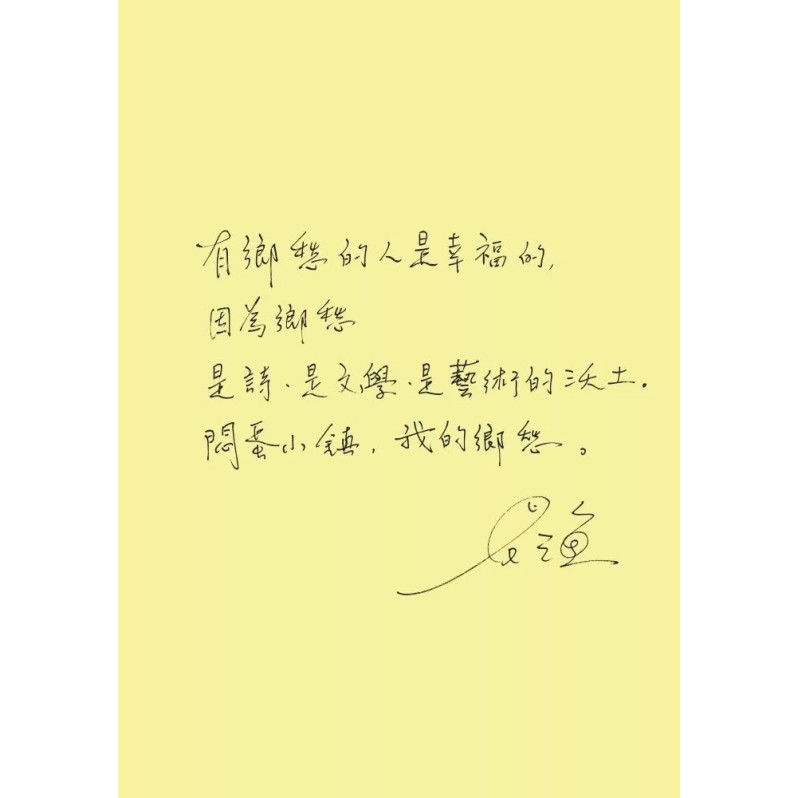 有鄉愁的人是幸福的,
因為鄉愁
是詩.是文學.是藝術的沃土.
悶蛋小鎮,我的鄉愁。
吳渔